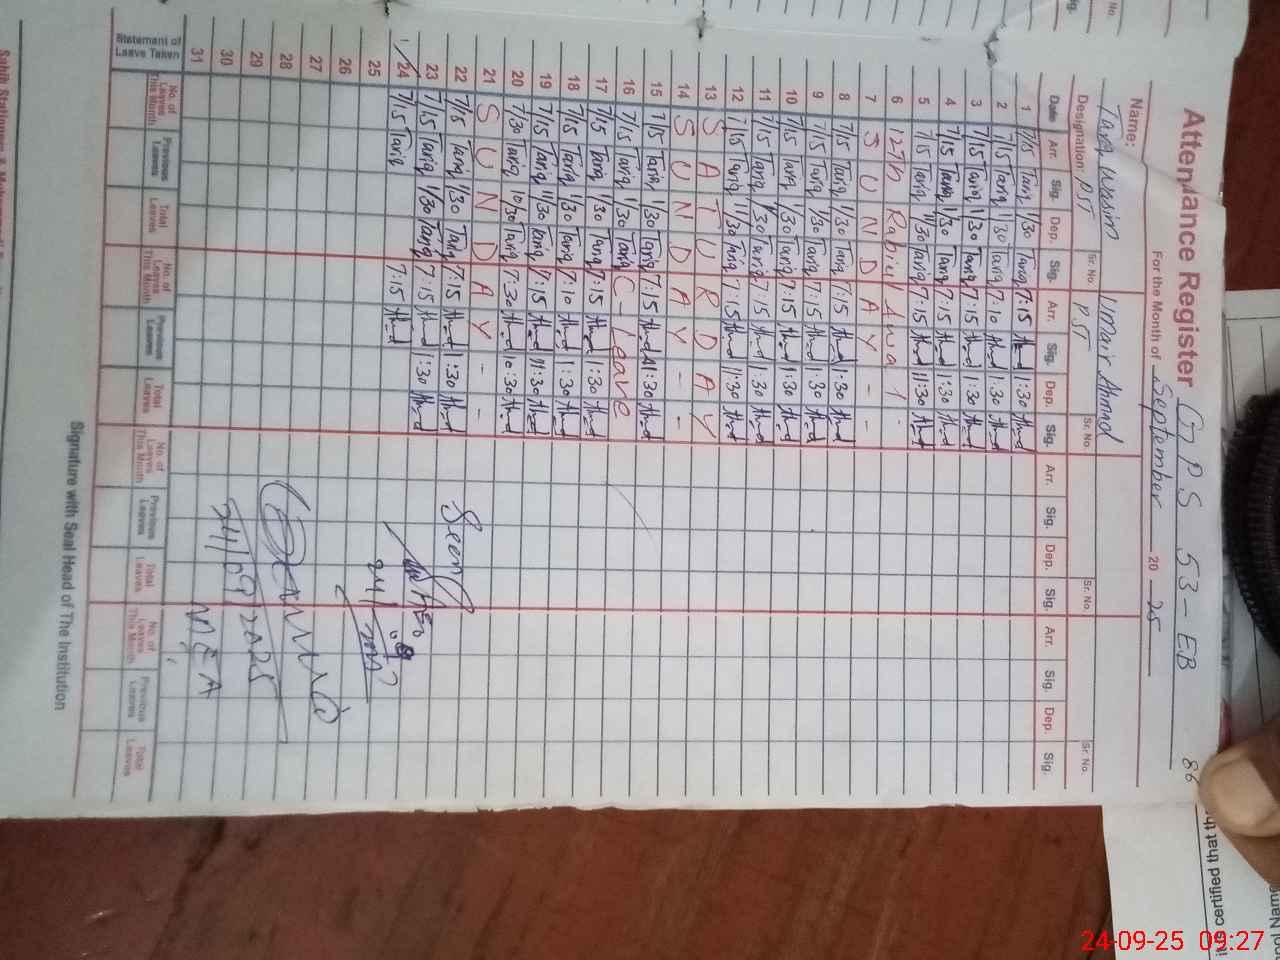 Attendance Register G P S 53-EB
86
For the Month of September 20 25
Name: Tareq Wasim Umair Ahmad
Designation: PST Sr. No. PST Sr. No. Sr. No. Sr. No.
Date Arr. Sig. Dep. Sig. Arr. Sig. Dep. Sig. Arr. Sig. Dep. Sig. Arr. Sig. Dep. Sig.
1 7/15 Tariq 1/30 Tariq 7:15 Ahmd 1:30 Ahmd
2 7/15 Tariq 1/30 Tariq 7:10 Ahmd 1:30 Ahmd
3 7/15 Tariq 1/30 Tariq 7:15 Ahmd 1:30 Ahmd
4 7/15 Tariq 1/30 Tariq 7:15 Ahmd 1:30 Ahmd
5 7/15 Tariq 11/30 Tariq 7:15 Ahmd 11:30 Ahmd
6 12th Rabiul Awal
7 S U N D A Y - -
8 7/15 Tariq 1/30 Tariq 7:15 Ahmd 1:30 Ahmd
9 7/15 Tariq 1/30 Tariq 7:15 Ahmd 1:30 Ahmd
10 7/15 Tariq 1/30 Tariq 7:15 Ahmd 1:30 Ahmd
11 7/15 Tariq 1/30 Tariq 7:10 Ahmd 1:30 Ahmd
12 7/15 Tariq 11/30 Tariq 7:15 Ahmd 11:30 Ahmd
13 S A T U R D A Y
14 S U N D A Y - -
15 7/15 Tariq 1/30 Tariq 7:15 Ahmd 1:30 Ahmd
16 7/15 Tariq 1/30 Tariq C - Leave
17 7/15 Tariq 1/30 Tariq 7:15 Ahmd 1:30 Ahmd
18 7/15 Tariq 1/30 Tariq 7:10 Ahmd 1:30 Ahmd
19 7/15 Tariq 11/30 Tariq 7:15 Ahmd 11:30 Ahmd
20 7/30 Tariq 10/30 Tariq 7:30 Ahmd 10:30 Ahmd
21 S U N D A Y - -
22 7/15 Tariq 1/30 Tariq 7:15 Ahmd 1:30 Ahmd
23 7/15 Tariq 1/30 Tariq 7:15 Ahmd 1:30 Ahmd
24 7/15 Tariq 7:15 Ahmd
Seen
AEO
25
26
27
28
29
30
24/09/2025
31
MEA
Statement of Leave Taken
No. of Leaves This Month Previous Leaves Total Leaves No. of Leaves This Month Previous Leaves Total Leaves No. of Leaves This Month Previous Leaves Total Leaves No. of Leaves This Month Previous Leaves Total Leaves
Signature with Seal Head of The Institution
24-09-25 09:27